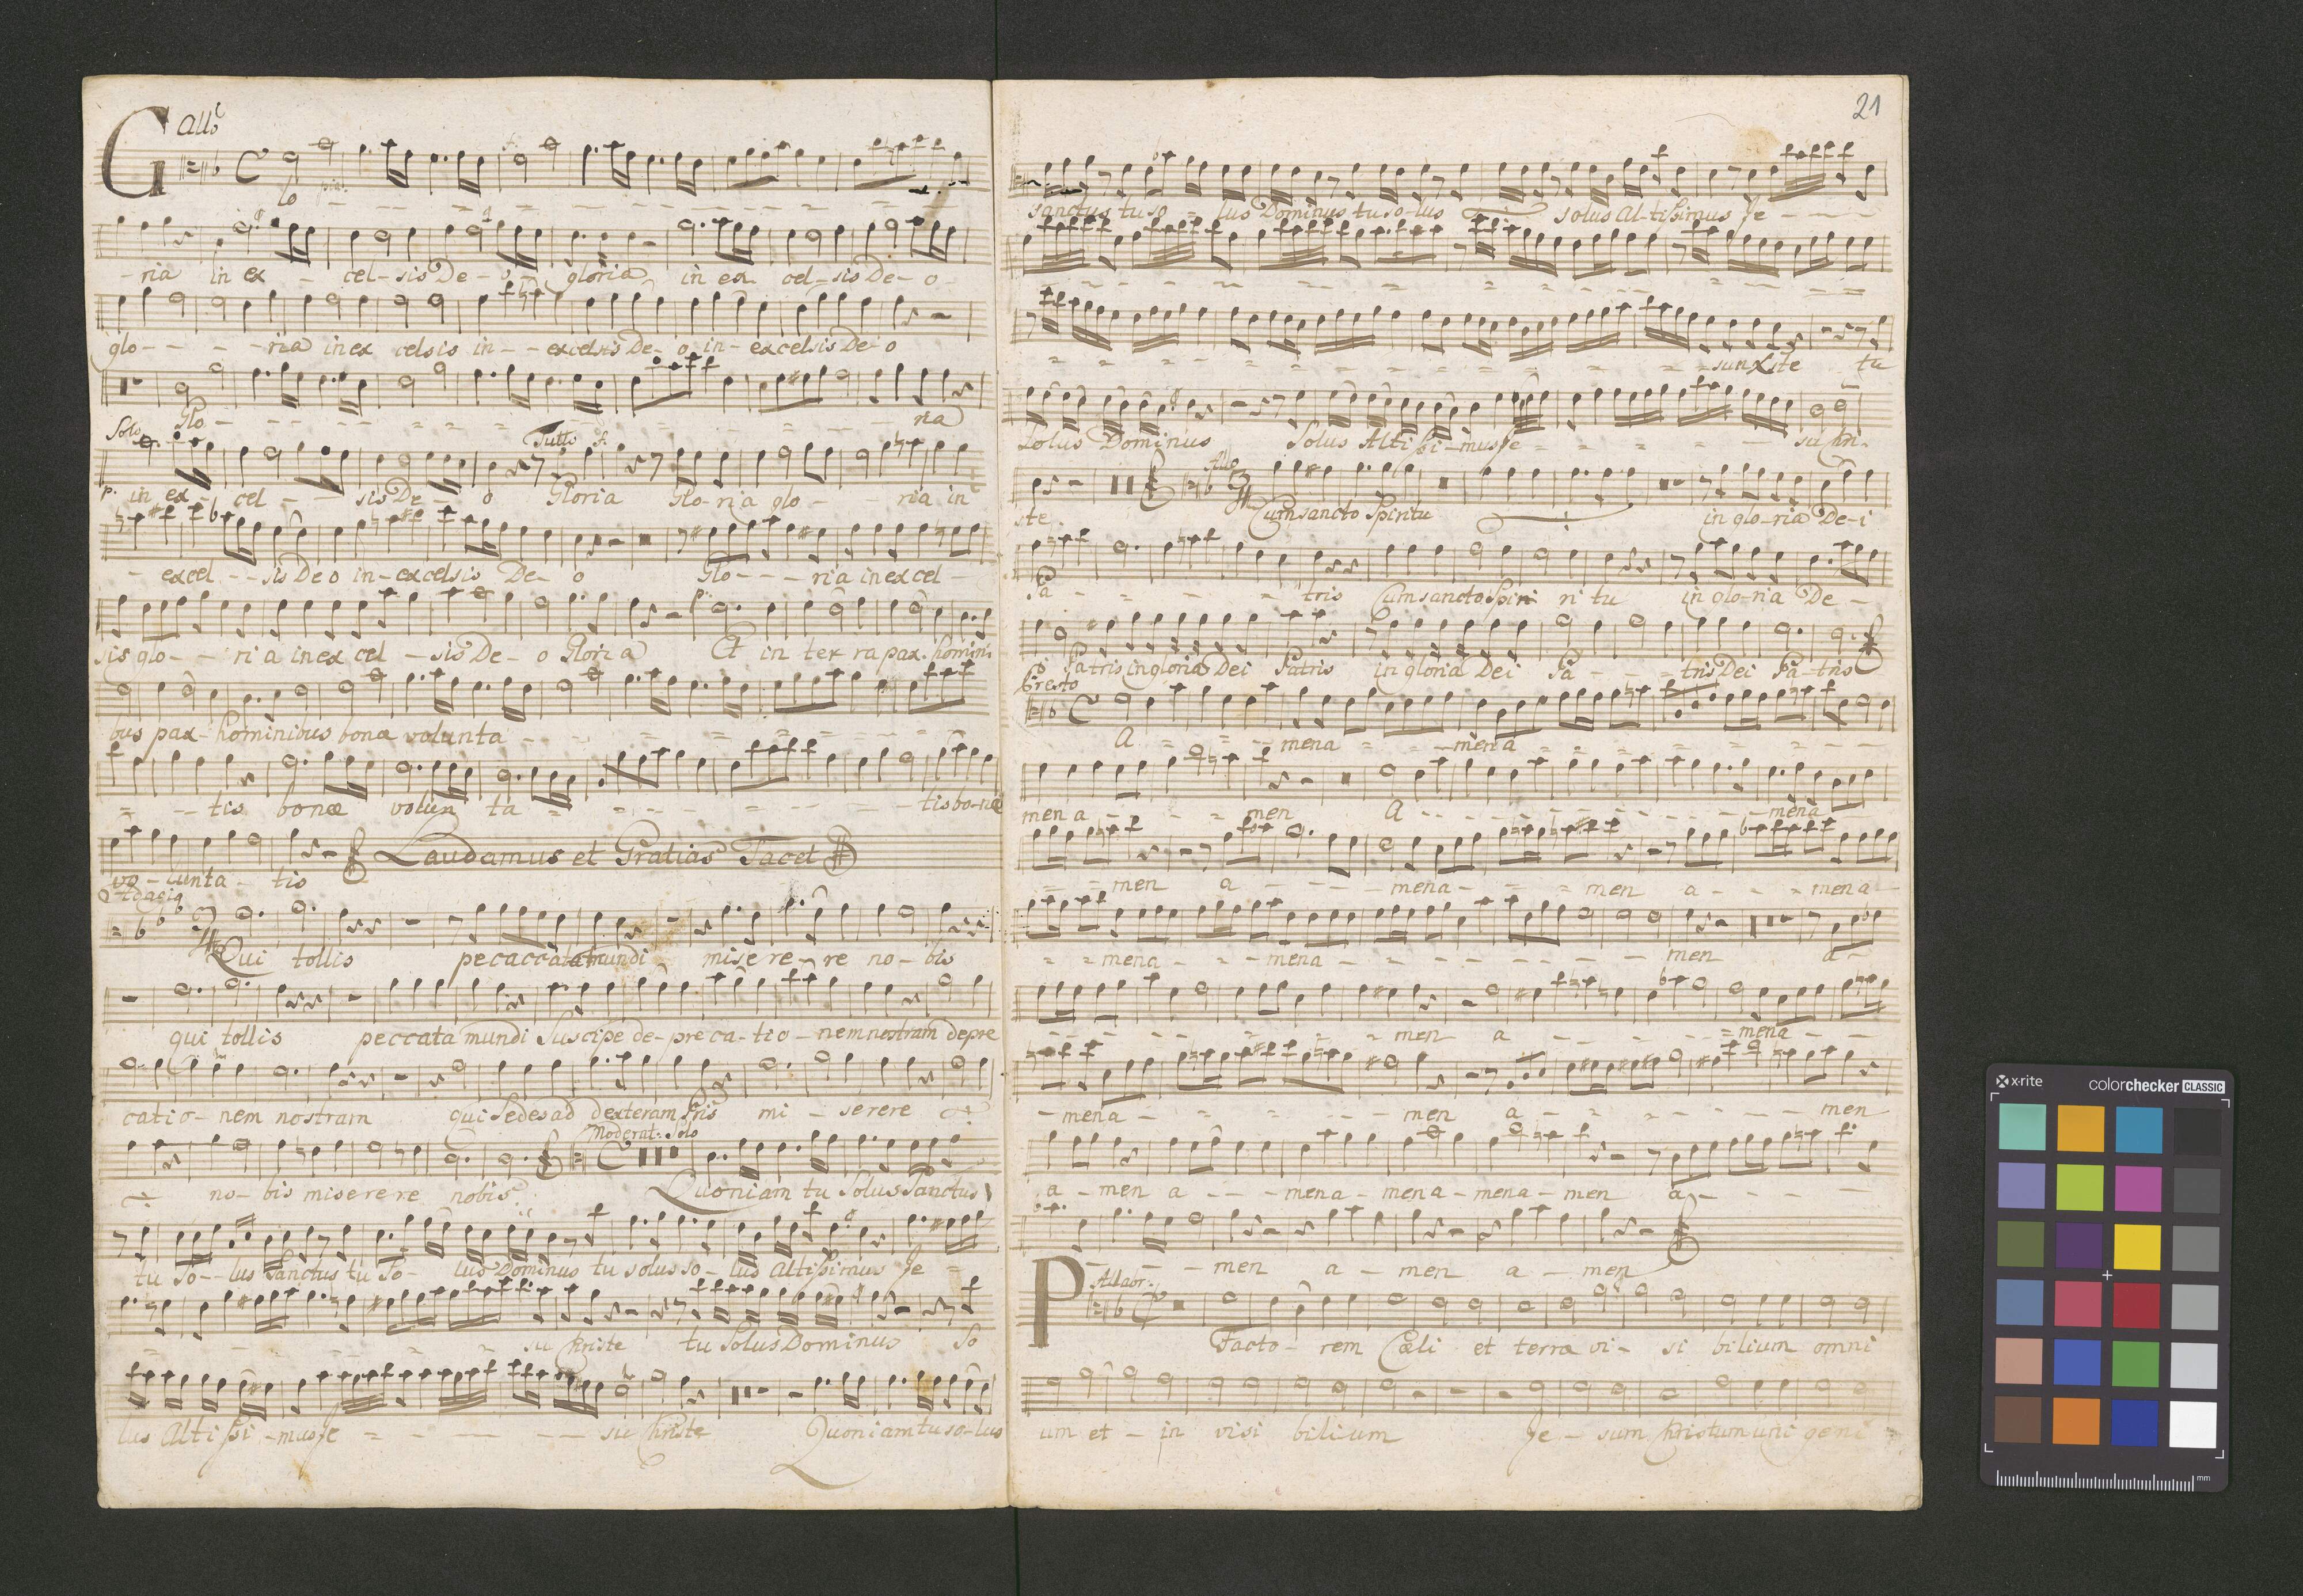 G all:o
lo pia:
ria in ex - cel - sis De - o gloria in ex cel - sis De - o
glo - - - ria in ex celsis in - - excelsis De - o in - excelsis De - o
Glo - - - ria
Solo Tutti f.
p. in ex - cel - - sis De - o Gloria Glo - ria glo - - ria in
- excel - - sis De o in - excelsis De - o Glo - - - ria in excel -
sis glo - - ri a in ex cel - sis De - o Gloria Et in ter ra pax homini
bus pax - hominibus bonæ volunta - - -
= - - tis bonæ volun ta = = - - - tis bo - næ
vo - lunta - tis
Laudamus et Gratias Tacet
Adagio
Qui tollis mundi mise re - re no - bis
qui tollis peccata mundi Suscipe de - preca - tio - nem nostram depre
catio - nem nostram qui Sedes ad dexteram Pris mi - serere
Moderat: Solo
no - bis miserere nobis Quoniam tu Solus Sanctus
tu So - - lus Sanctus tu So - lus Dominus tu solus so - lus Altissimus Je =
su Christe tu Solus Dominus So
lus Alti ssi - mus Je = - - - su Christe Quoniam tu so - lus
21
sanctus tu so = lus Dominus tu so - lus solus Al - tissimus Je - - -
su Xste tu
Solus Dominus Solus Alti ssi - mus Je = = = su Kri -
Allo
ste Cum sancto Spiritu in glo - ria De - i
Pa - - - - tris Cum sancto Spiri ri tu in glo - ria De -
i Patris in gloria Dei Patris in gloria Dei Pa - - - tris Dei Pa - tris
Presto
A = = - - mena = - - mena = = =
mena - - - men A - - - - mena
= = men a - - - mena - = = men a - - = mena -
= = mena - = - - mena - - - - men a -
- - - - = men a - - - = mena - -
- mena - = = - - men a - = - - - men
a - men a - - - mena - mena - mena - men a - - -
- - - men a - men a - men
P Allabr:
Facto - rem Cœli et terræ vi - si bilium omni
um et - in visi bilium Je - sum Christum uni geni
x-rite colorchecker CLASSIC
mm